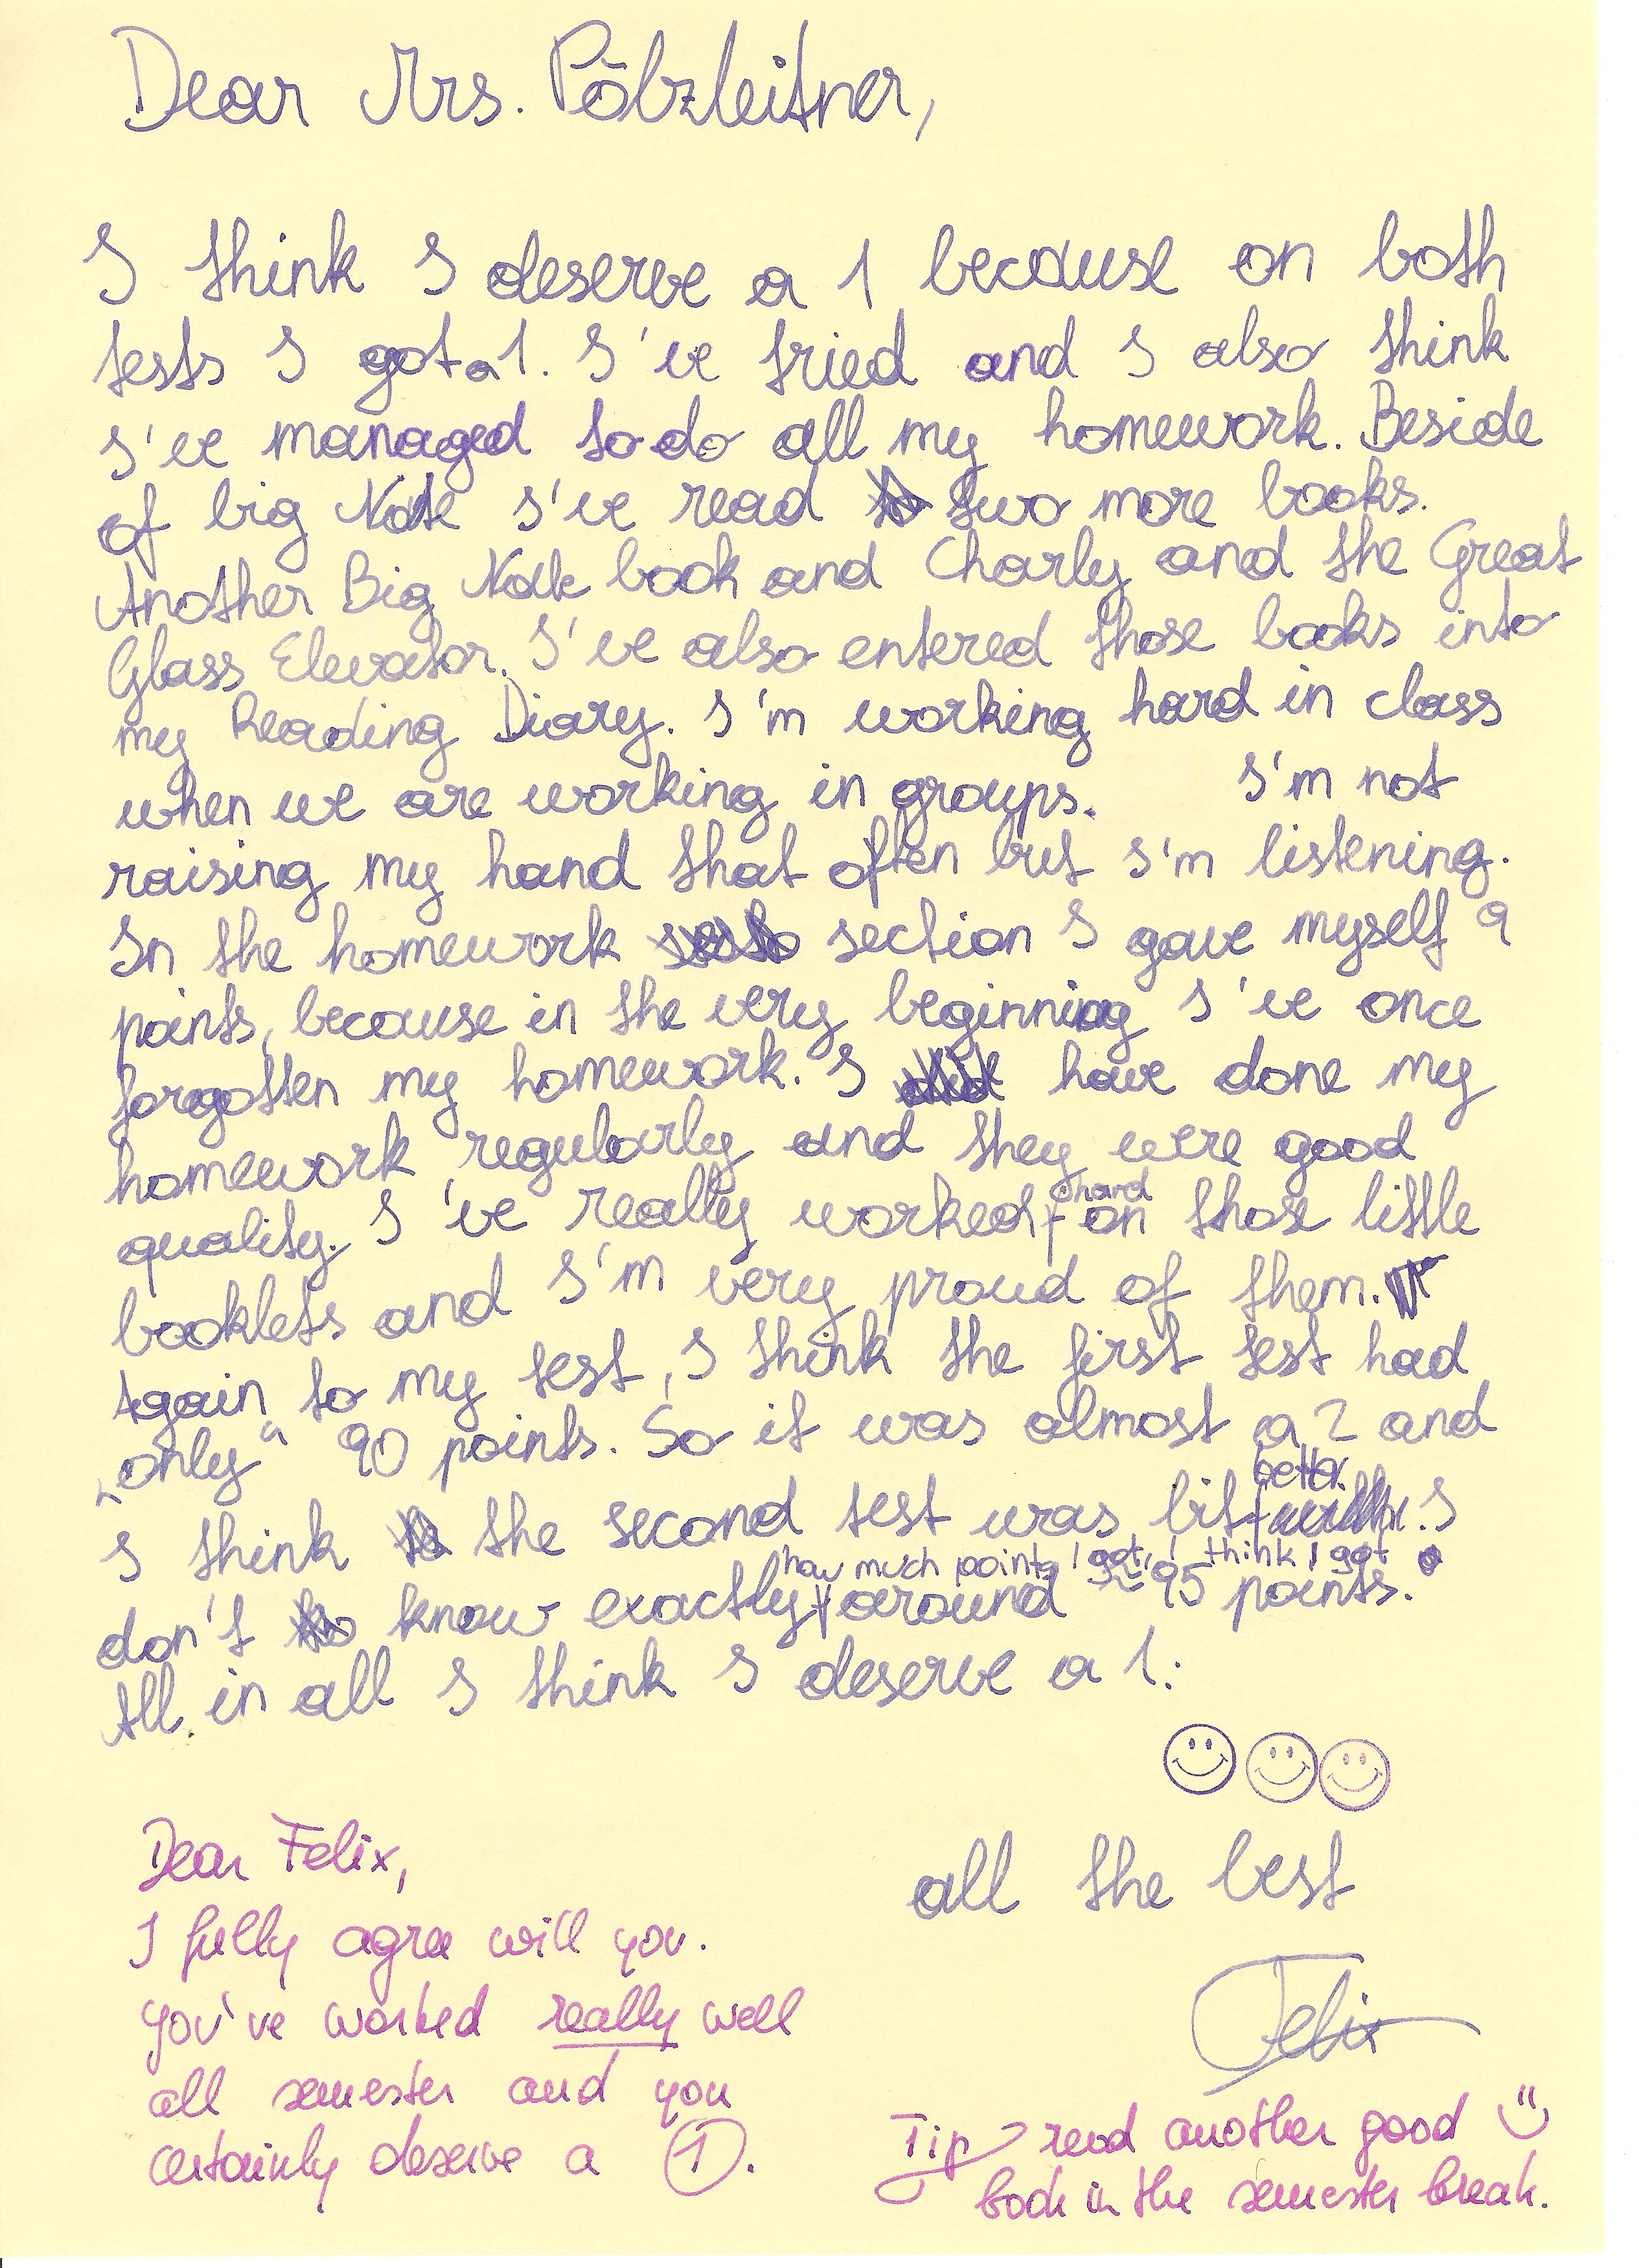 Dear Mrs. Pölzleitner,
I think I deserve a 1 because on both
tests I got a 1. I've tried and I also think
I've managed to do all my homework. Beside
of big Nate I've read two more books.
Another Big Nate book and Charly and the Great
Glass Elevator. I've also entered those books into
my Reading Diary. I'm working hard in class
when we are working in groups. I'm not
raising my hand that often but I'm listening.
In the homework section I gave myself 9
points, because in the very beginning I've once
forgotten my homework. I have done my
homework regularly and they were good
quality. I've really worked hard on those little
booklets and I'm very proud of them.
Again to my test, I think the first test had
„only“ 90 points. So it was almost a 2 and
I think the second test was bit better. I
don't know exactly how much points I got, I think I got around ~95 points.
All in all I think I deserve a 1.
all the best
Felix
Dear Felix,
I fully agree will you.
You've worked really well
all semester and you
certainly deserve a 1.
Tip read another good
book in the semester break.